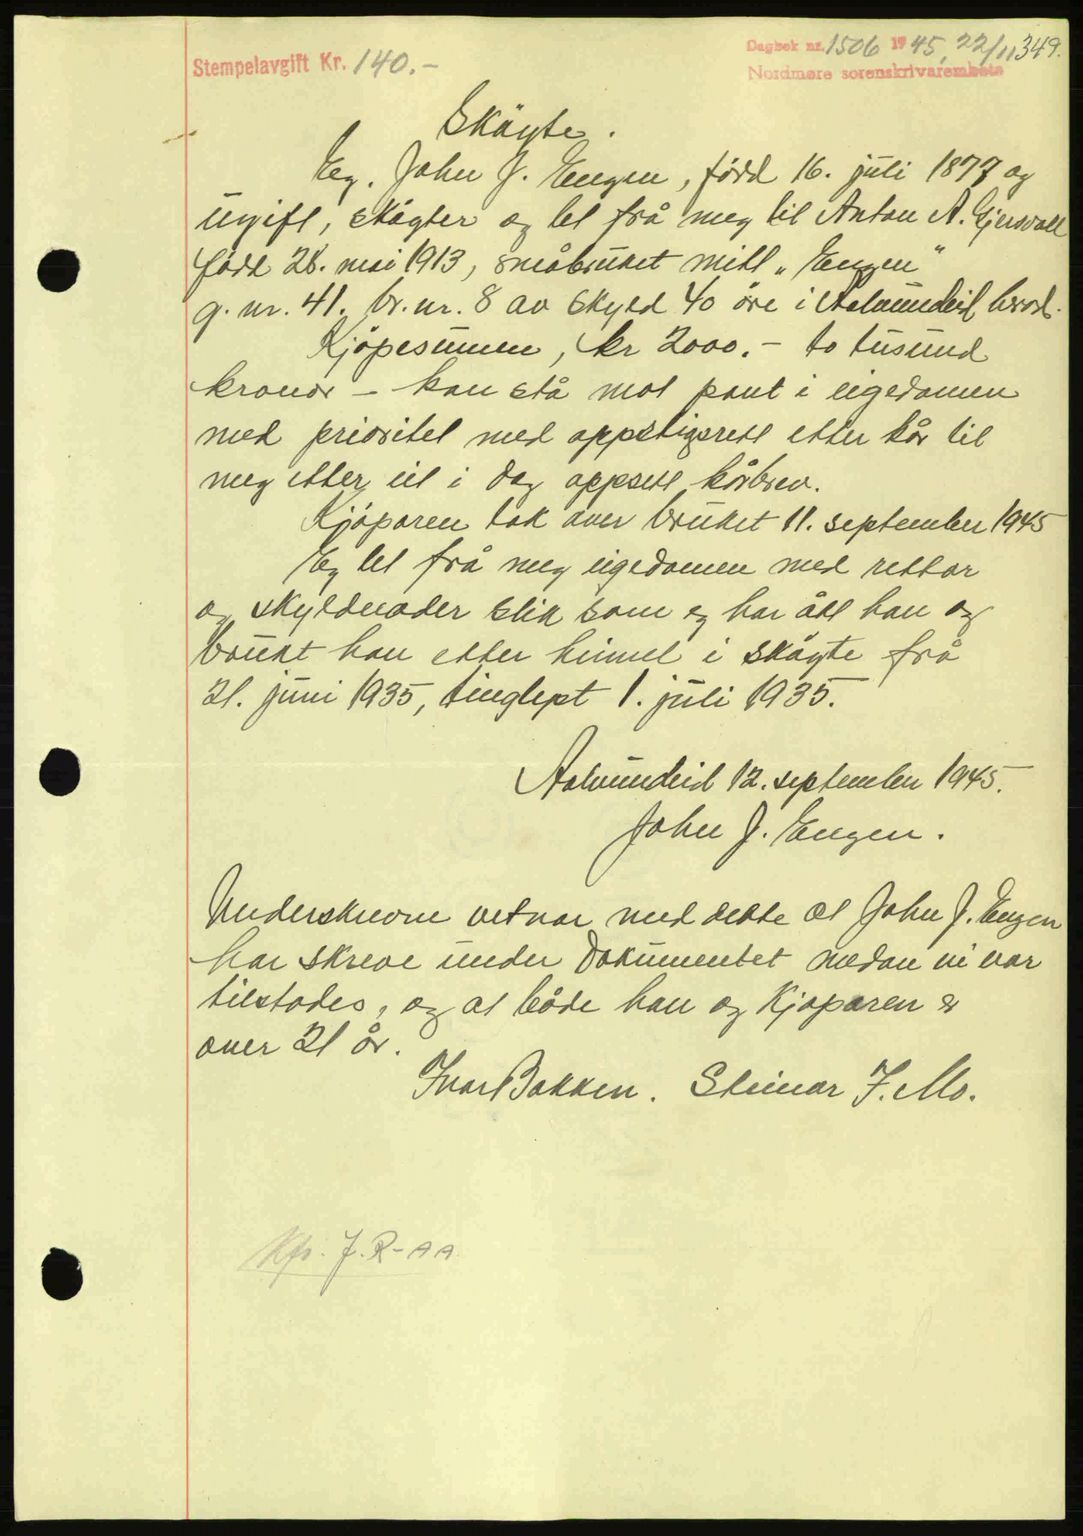 Stempelavgift Kr. 140.-
Dagbok nr. 1506 1945, 22/11 349.
Nordmøre sorenskrivarembete
Skøyte.
Eg, John J. Engen, født 16. juli 1877 og
ugift, skøyter og let frå meg til Anton A. Gjersvoll
født 28. mai 1913, småbruket mitt "Engen"
g. nr. 41. br. nr. 8 av skyld 40 øre i Aalvundeid herad.
Kjøpesummen, kr 2000.- to tusund
kronor - kan stå mot pant i eigedomen
med prioritet med oppstigsrett etter kår til
meg etter eit i dag oppsett kårbrev.
Kjøparen tok over bruket 11. september 1945
Eg let frå meg eigedomen med rettar
og skyldnader slik som eg har ått han og
brukt han etter heimel i skøyte frå
21. juni 1935, tinglest 1. juli 1935.
Aalvundeid 12. september 1945.
John J. Engen.
Underskrevne vetnar med dette at John J. Engen
har skreve under dokumentet medan vi var
tilstades, og at både han og kjøparen er
over 21 år.
Ivar Bakken. Steinar J. Mo.
Kfr. J. R-AA